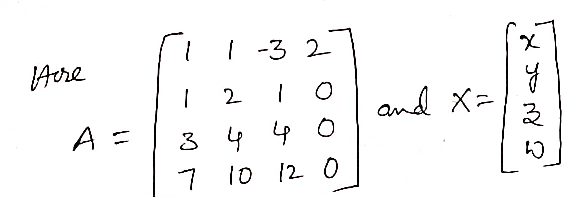 Here
A = [1 1 -3 2
1 2 1 0
3 4 4 0
7 10 12 0] and X = [x
y
z
w]